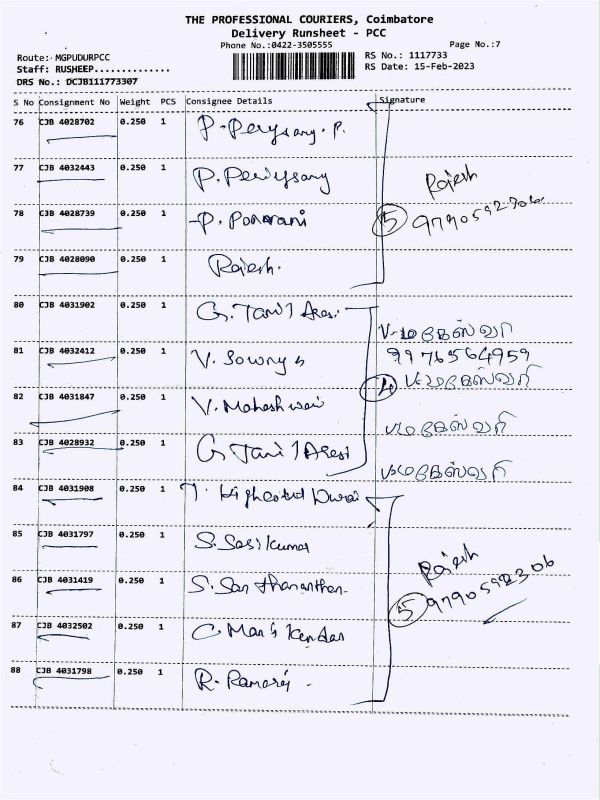 THE PROFESSIONAL COURIERS, Coimbatore
Delivery Runsheet - PCC
Phone No.:0422-3505555
Page No.:7
Route: MGPUDURPCC
RS No.: 1117733
Staff: RUSHEEP..............
RS Date: 15-Feb-2023
DRS No.: DCJB111773307
S No Consignment No Weight PCS Consignee Details Signature
76 CJB 4028702 0.250 1
77 CJB 4032443 0.250 1 P.
Rajesh
78 CJB 4028739 0.250 1 P.
5 9790592306
79 CJB 4028090 0.250 1 Rajesh.
80 CJB 4031902 0.250 1 G.
வ.மகேஸ்வரி
81 CJB 4032412 0.250 1 V.
9976564959
4 வ.மகேஸ்வரி
82 CJB 4031847 0.250 1 V. Maheshwari
வ.மகேஸ்வரி
83 CJB 4028932 0.250 1 G
வ.மகேஸ்வரி
84 CJB 4031908 0.250 1
85 CJB 4031797 0.250 1 S. Sasikumar
Rajesh
86 CJB 4031419 0.250 1 S.
5 9790592306
87 CJB 4032502 0.250 1 C.
88 CJB 4031798 0.250 1 R. Ramaraj